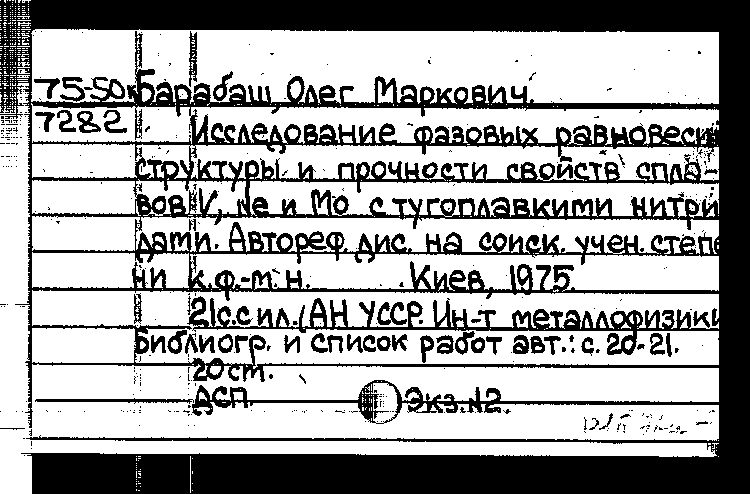 75-50к Барабаш, Олег Маркович.
7282 Исследование фазовых равновесий
структуры и прочности свойств спла-
вов V, Ne и Mo с тугоплавкими нитри
дати. Автореф. дис. на соиск. учен. степе
ни к.ф.-т. н. Киев, 1975.
21с. с ил. (АН УССР. Ин-т металлофизики
Библиогр. и список работ авт.: с. 20-21.
20 cm.
ДСП. Экз. №2.